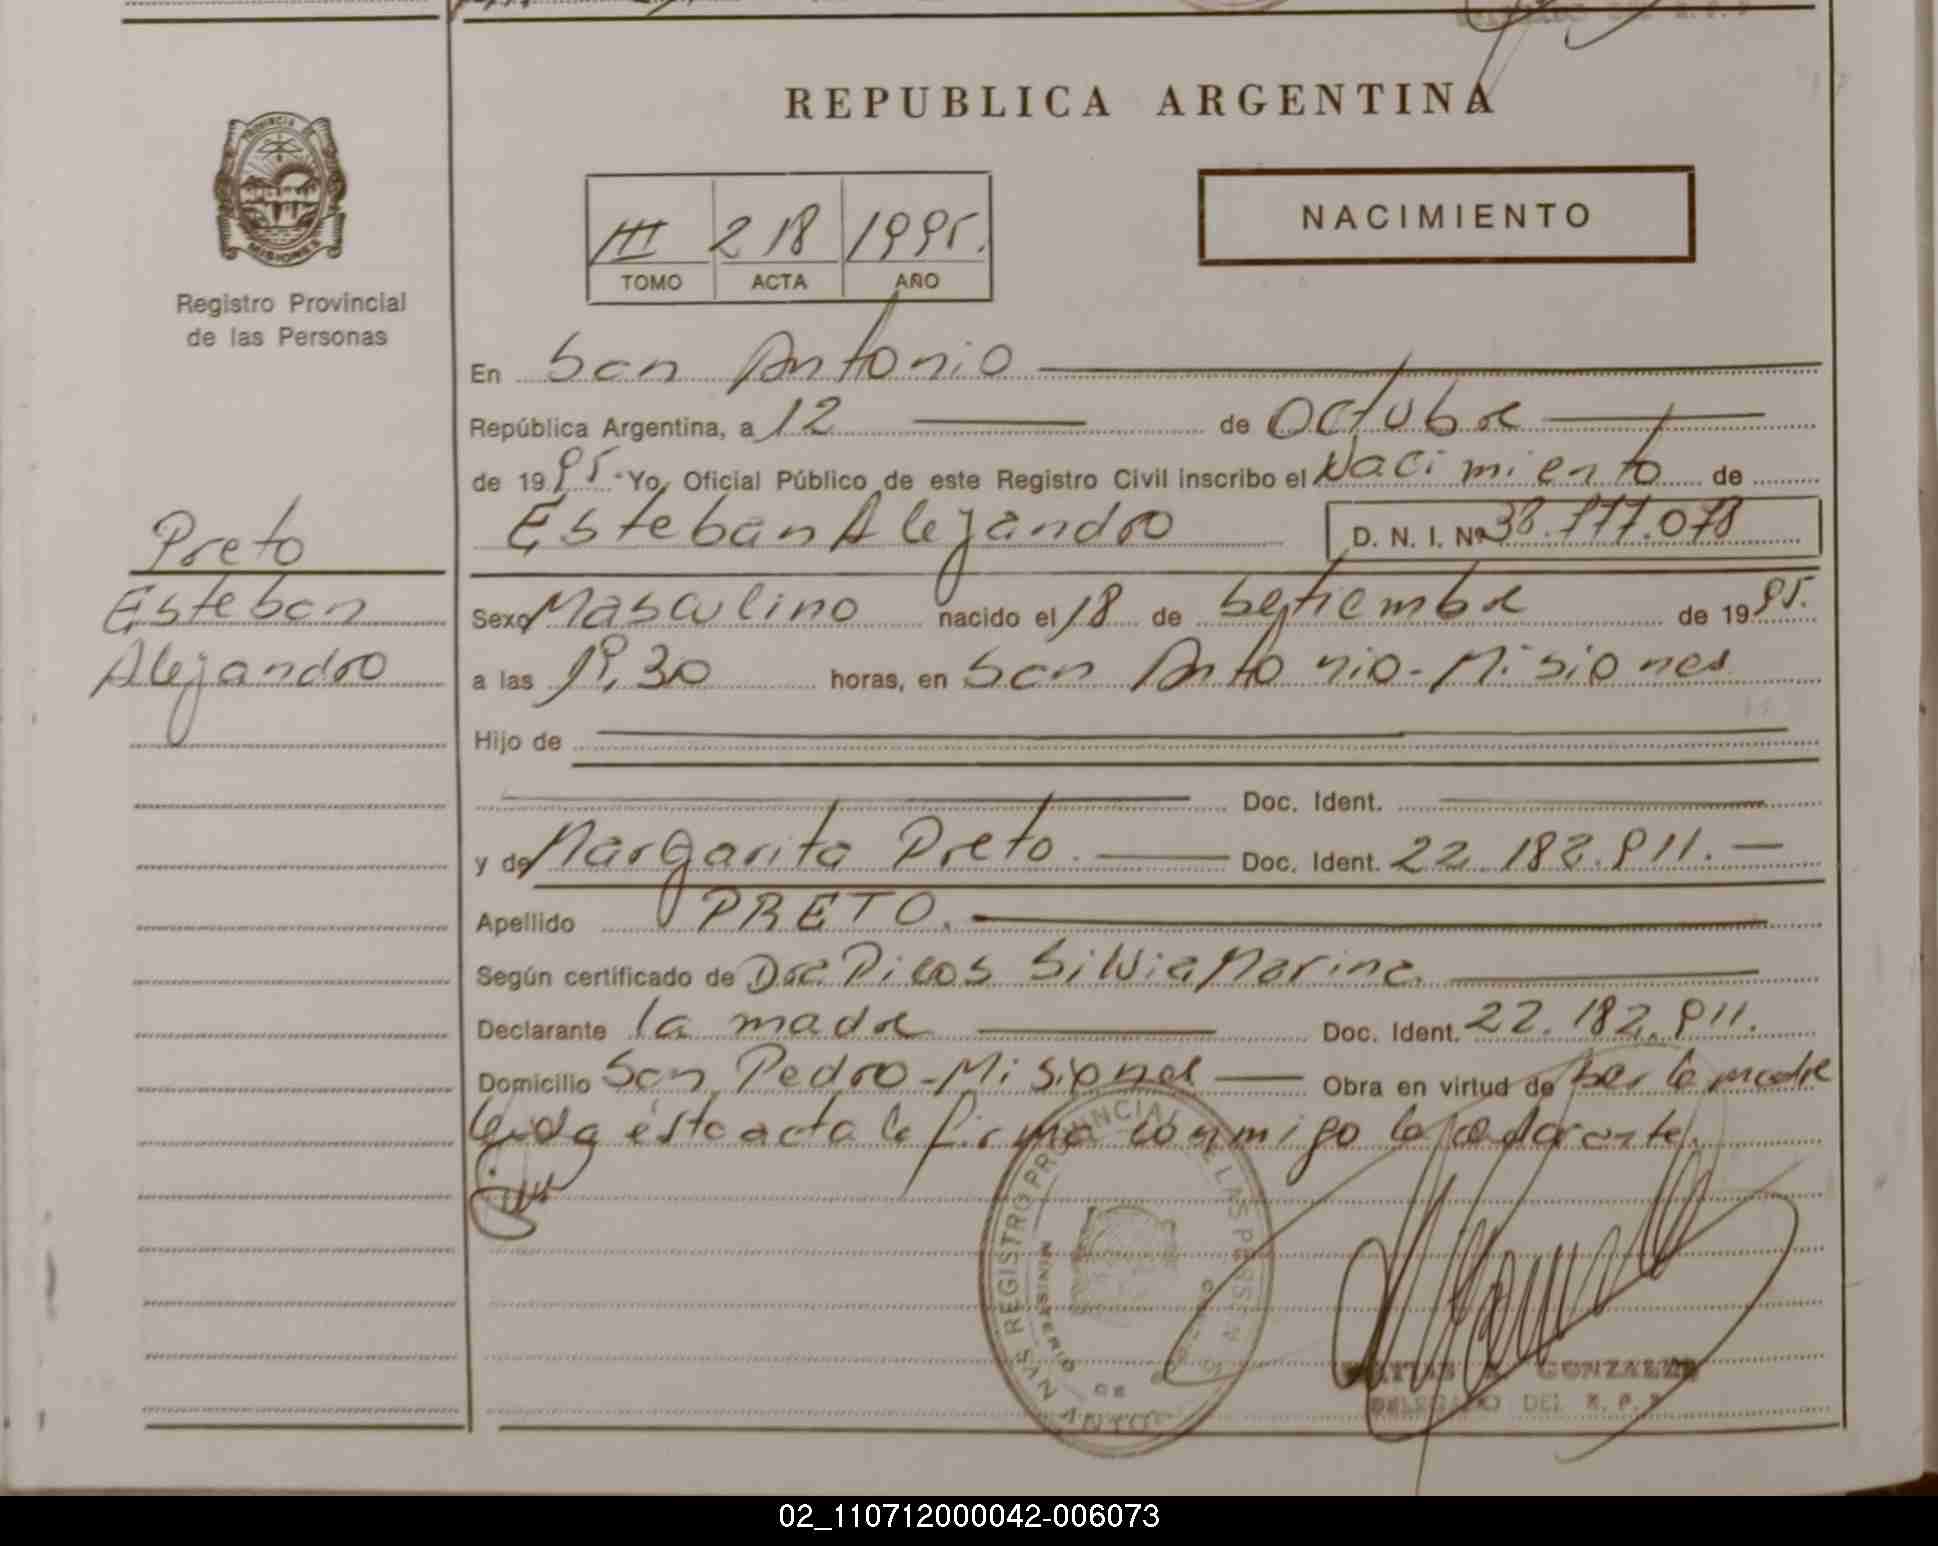 REPUBLICA ARGENTINA
PROVINCIA DE
MISIONES
Registro Provincial
de las Personas
III 218 1995.
TOMO ACTA AÑO
NACIMIENTO
En San Antonio
República Argentina, a 12 de Octubre
de 1995 Yo, Oficial Público de este Registro Civil inscribo el Nacimiento de
Esteban Alejandro D. N. I. Nº 38.777.078
Preto
Esteban
Alejandro
Sexo Masculino nacido el 18 de Setiembre de 1995.
a las 19,30 horas, en San Antonio-Misiones
Hijo de
Doc. Ident.
y de Margarita Preto. Doc. Ident. 22.182.911.
Apellido PRETO.
Según certificado de Dra. Silvia Marina.
Declarante la madre Doc. Ident. 22.182.911.
Domicilio San Pedro-Misiones Obra en virtud de ser la madre
leida ésta acta la firma conmigo la declarante.
REGISTRO PROVINCIAL DE LAS PERSONAS
GONZALEZ
DELEGADO DEL R. P. P
02_110712000042-006073